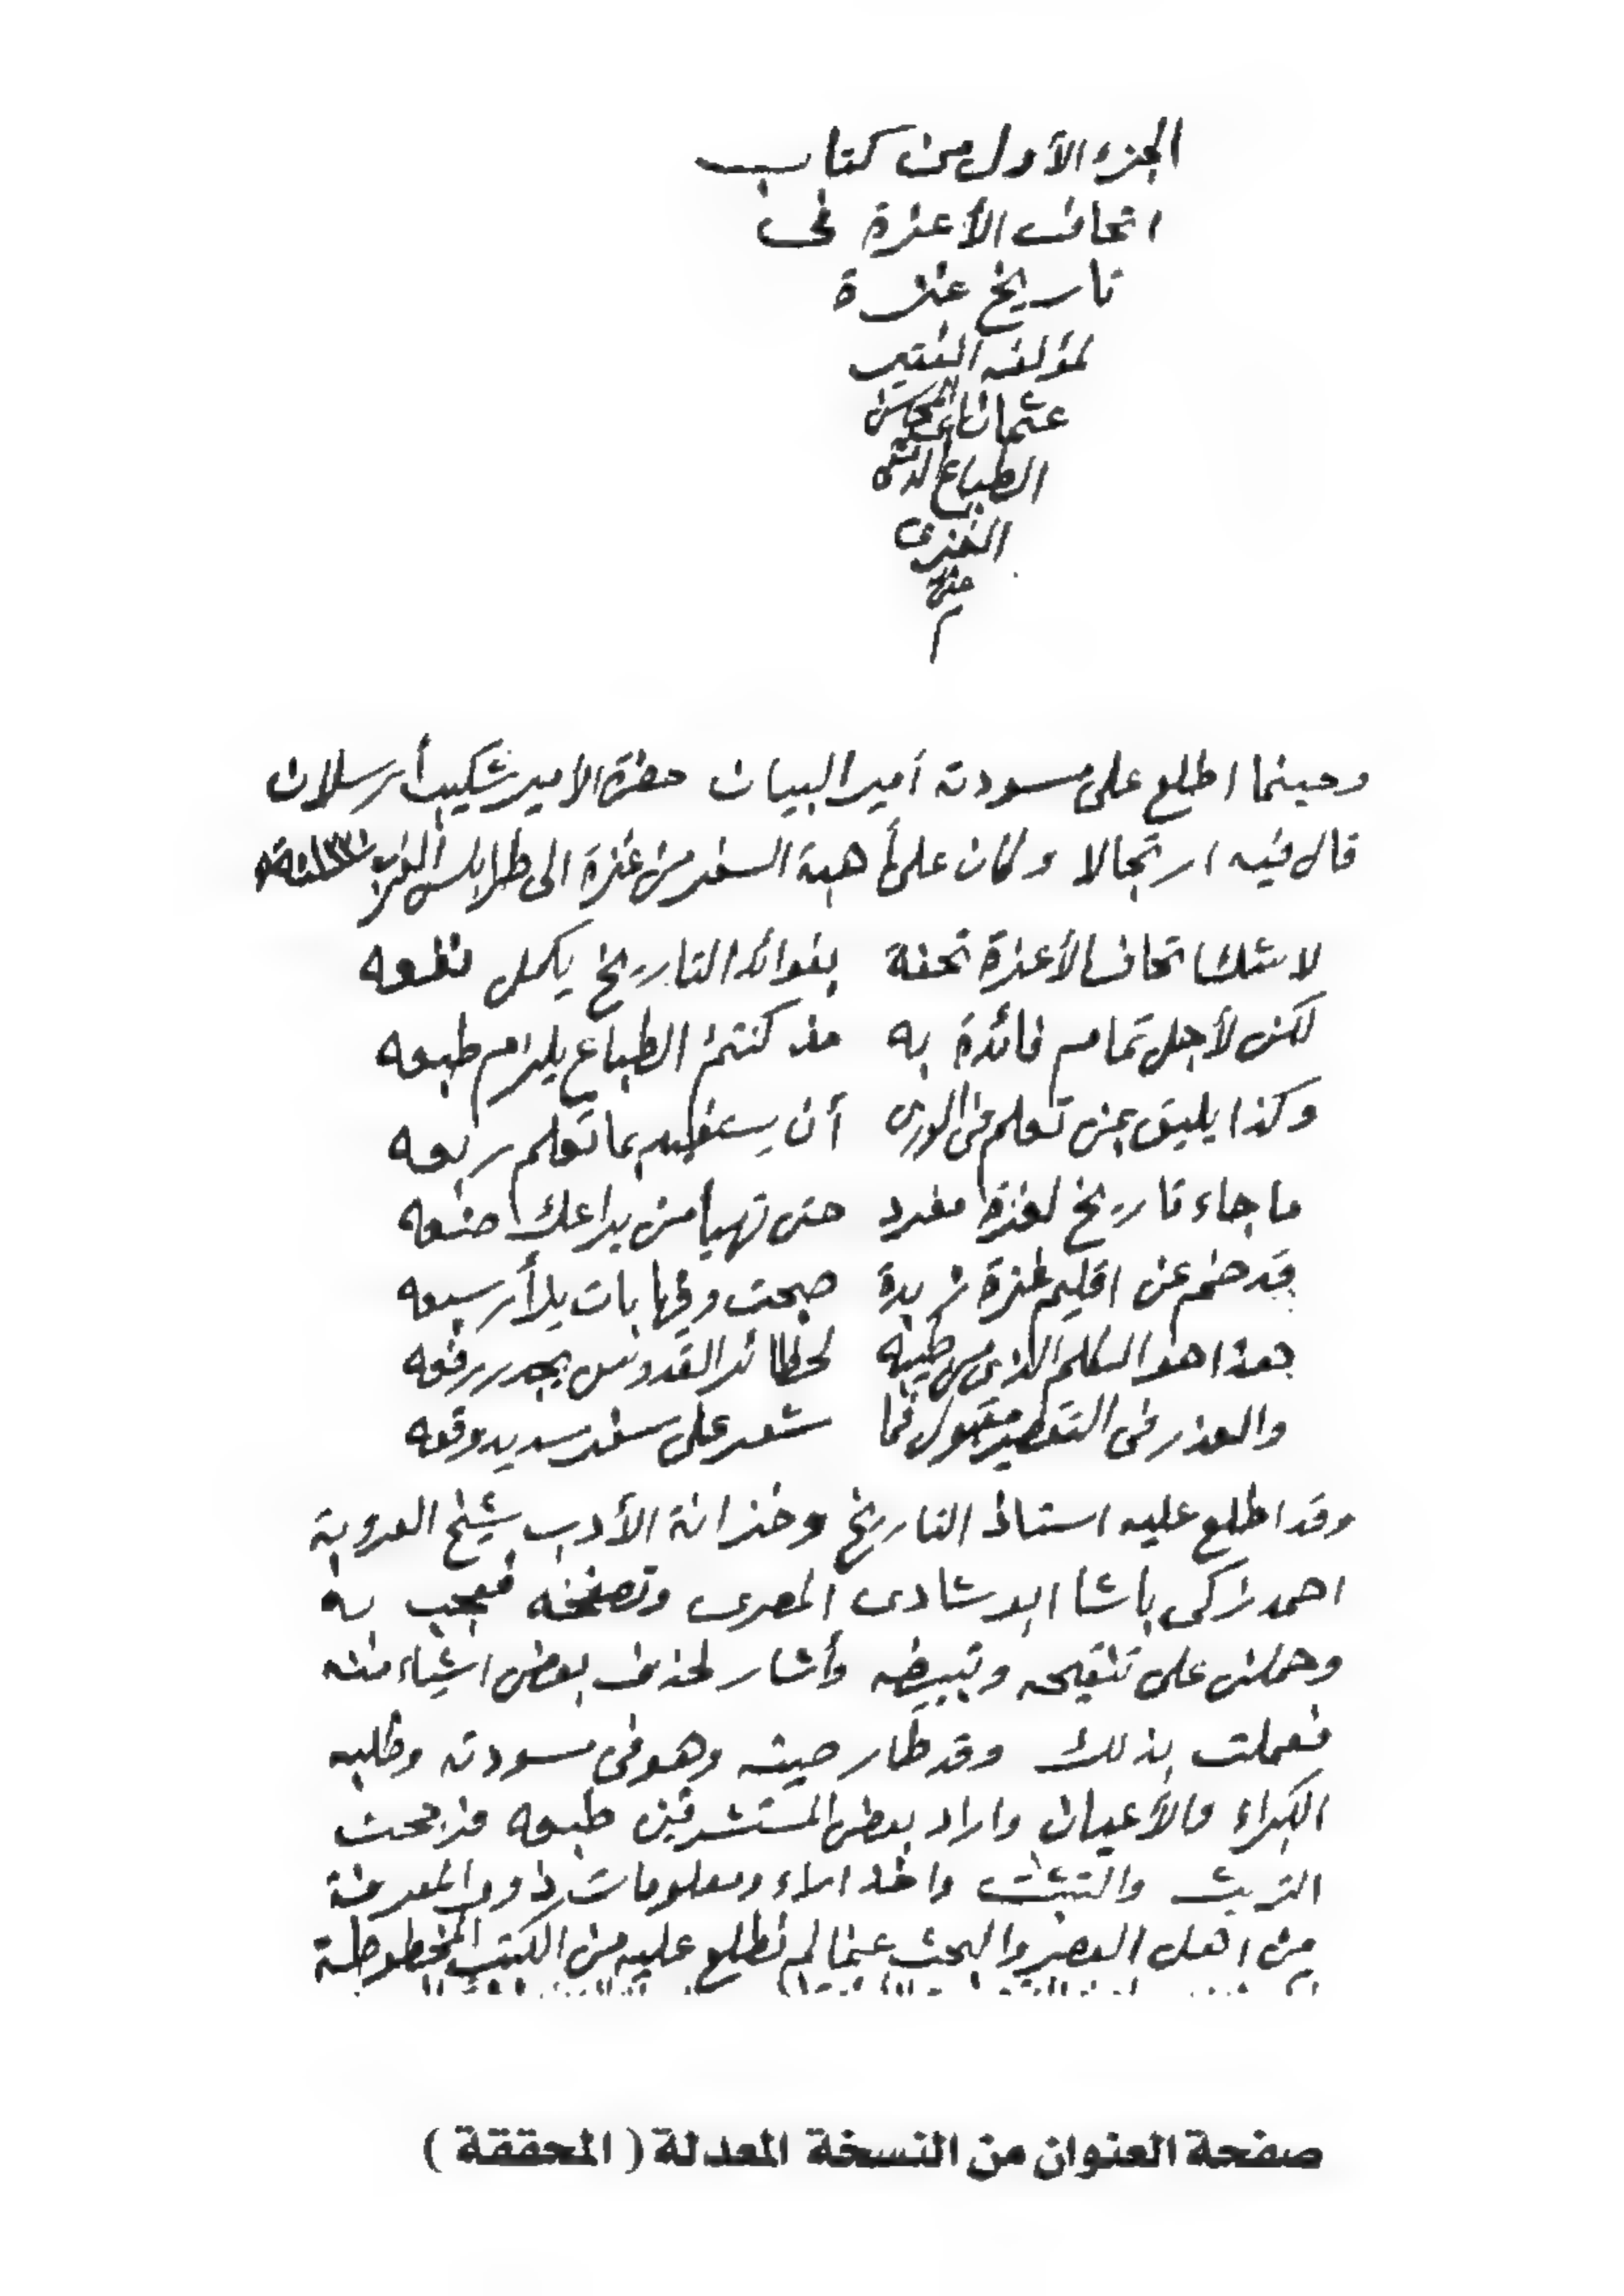 الجزء الأول من كتاب
اتحاف الأعزة فى
تاريخ غزة
لمؤلفه الفقير
عثمان
الطباع
الغزى
وحينما اطلع على مسودته أمير البيان حضرة الأمير شكيب أرسلان
قال فيه ارتجالا وكان على أهبة السفر من غزة الى طرابلس الغرب
لا شك اتحاف الأعزة تحفة بفوائد التاريخ يكمل نفعه
لكن لأجل تمام فائدة به مذ كنتم الطباع يلزم طبعه
وكذا يليق بمن تعلم فى الورى أن يستفيد بما تعلم ربعه
ما جاء تاريخ لغزة مفرد حتى تهيأ من يراعك صنعه
قد ضم عن اقليم غزة زبدة صحت وفيها بات يلأر سيعه
هذا هو الكلم الذى من طيبه لحظائر القدوس يجدر رفعه
والعذر فى التقصير مقبول فما شعر على سفر سديد وقعه
وقد اطلع عليه استاذ التاريخ وخزانة الأدب شيخ العروبة
احمد زكى باشا المصرى وتصفحه فعجب به
وحملنى على تنقيحه وتبييضه وأشار لحذف بعض اشياء منه
فعملت بذلك وقد طار صيته وهو فى مسودته وطلبه
الكبراء والأعيان واراد بعض المستشرقين طبعه فرجحت
التريث والتثبت واخذ اراء ومعلومات ذوى المعرفة
من اهل العصر والبحث عما لم نطلع عليه من الكتب المخطوطة
صفحة العنوان من النسخة المعدلة ( المحققة )